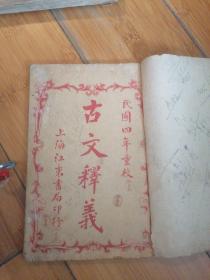 民國四年重校
古文釋義
上海江東書局印行